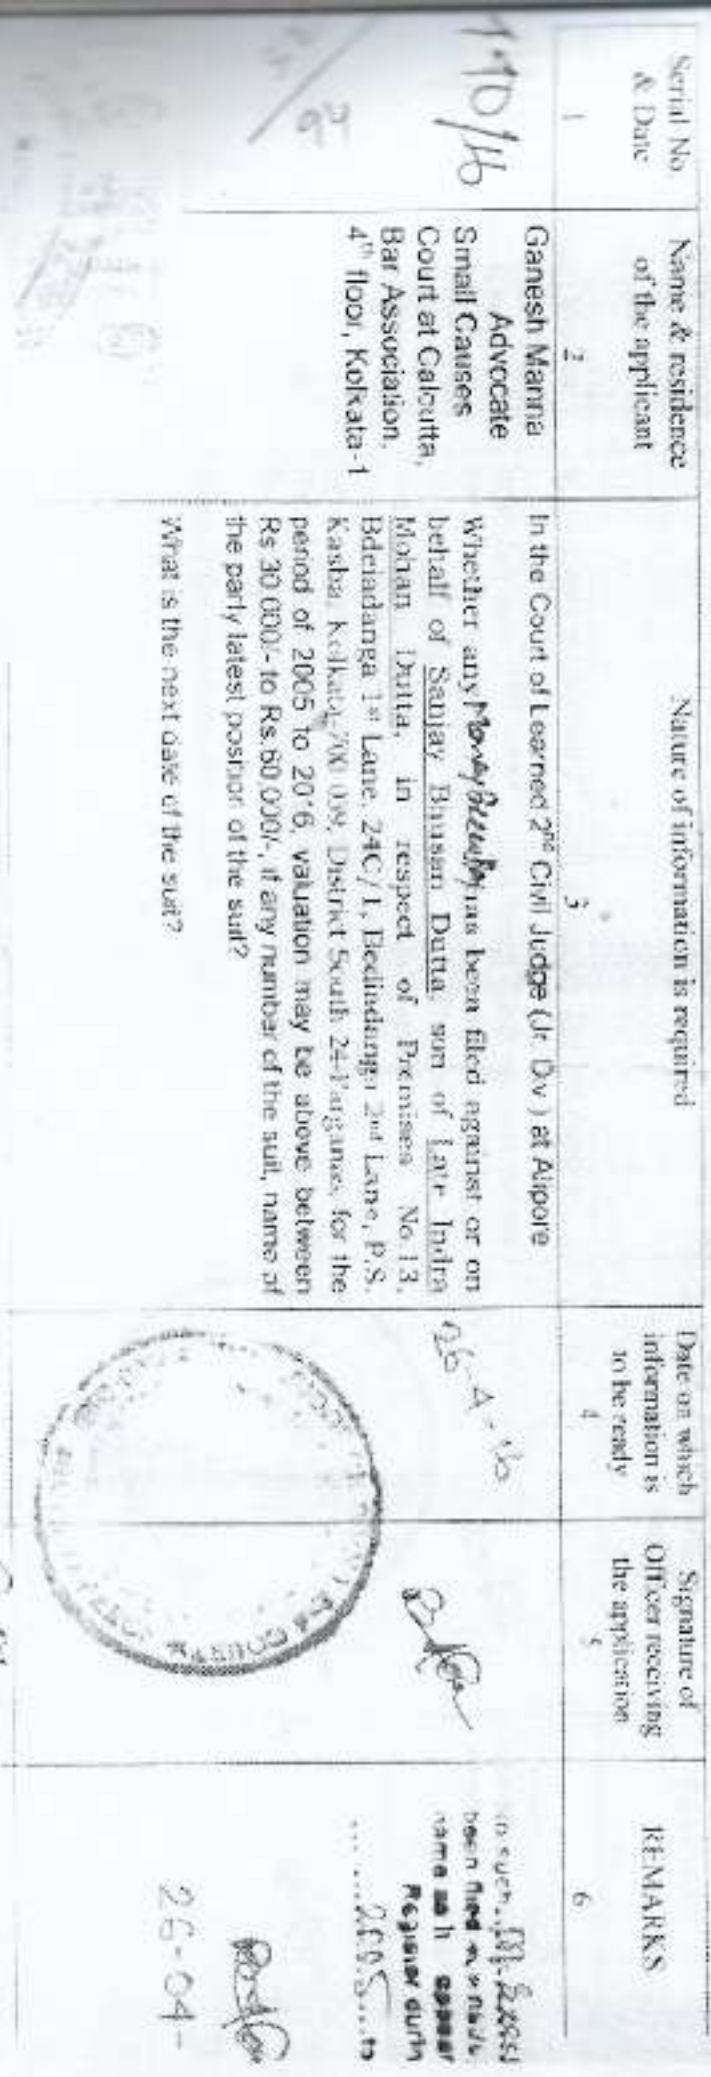 Serial No
& Date
1
Name & residence
of the applicant
2
Nature of information is required
3
Date on which
information is
to be ready
4
Signature of
Officer receiving
the application
5
REMARKS
6
190/16
Ganesh Manna
Advocate
Small Causes
Court at Calcutta,
Bar Association,
4th floor, Kolkata-1
In the Court of Learned 2nd Civil Judge (Jr. Div.) at Alipore
Whether any Money has been filed against or on
behalf of Sanjay Bhusan Dutta, son of Late Indra
Mohan Dutta, in respect of Premises No.13,
Bdeiadanga 1st Lane, 24C/1, Bediadanga 2nd Lane, P.S.
Kasba, Kolkata-700 039, District South 24-Parganas, for the
period of 2005 to 2016, valuation may be above between
Rs 30,000/- to Rs.60,000/-, if any number of the suit, name of
the party latest position of the suit?
What is the next date of the suit?
26-4-16
COURT
no such
been filed
name as appear
Register durin
... ...2005...to
26-04-